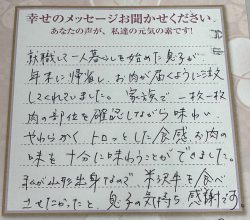 幸せのメッセージお聞かせください
あなたの声が、私達の元気の素です!
就職して一人暮らしを始めた息子が
年末に帰省し、お肉が届くように注文
してくれていました。家族で一枚一枚
肉の部位を確認しながら味わい
やわらかく、トロッとした食感お肉の
味を十分に味わうことができました。
私が山形出身なので米沢牛を食べ
させたかったと、息子の気持ち感謝です。